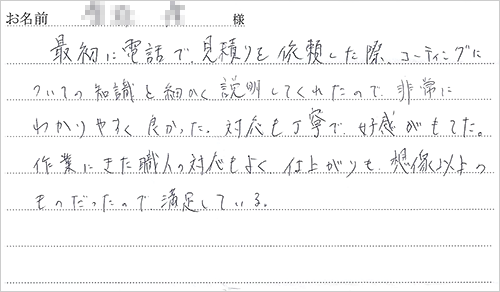 お名前 様
最初に電話で見積りを依頼した際、コーティングに
ついての知識を細かく説明してくれたので、非常に
わかりやすく良かった。対応も丁寧で、好感がもてた。
作業にきた職人の対応もよく、仕上がりも想像以上の
ものだったので満足している。